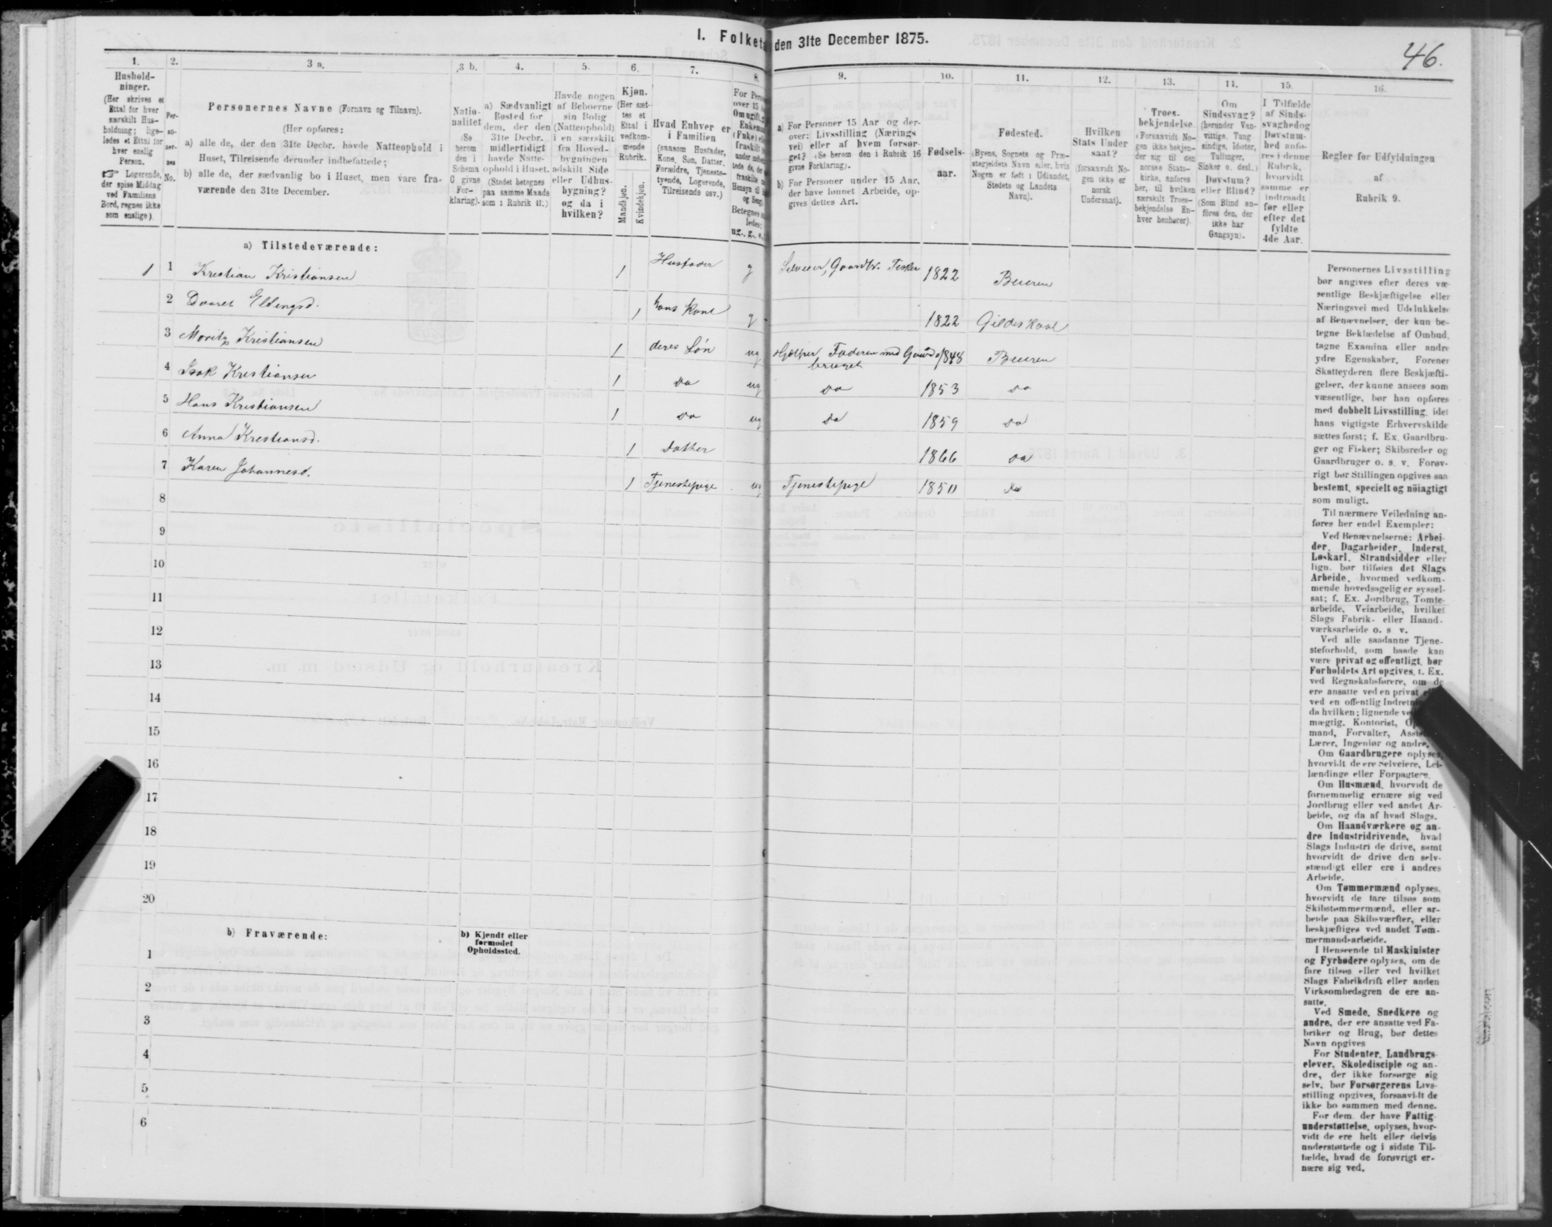 I. Folketæ den 31te December 1875.
46.
1.
Hushold-
ninger.
(Her skrives et
Ettal for hver
særskilt Hus-
holdning; lige-
ledes et Ettal for
hver enslig
Person.
☞ Logerende,
der spise Middag
ved Familiens
Bord, regnes ikke
som enslige).
2.
Per-
so-
ner-
nes
No.
3 a.
Personernes Navne (Fornavn og Tilnavn).
(Her opføres:
a) alle de, der den 31te Decbr. havde Natteophold i
Huset, Tilreisende derunder indbefattede;
b) alle de, der sædvanlig bo i Huset, men vare fra-
værende den 31te December.
3 b.
Natio-
nalitet
(Se
herom
den i
Schema
O givne
For-
klaring).
4.
a) Sædvanligt
Bosted for
dem, der den
31te Decbr.
midlertidigt
havde Natte-
ophold i Huset.
(Stedet betegnes
paa samme Maade
som i Rubrik 11.)
5.
Havde nogen
af Beboerne
sin Bolig
(Natteophold)
i en særskilt
fra Hoved-
bygningen
adskilt Side
eller Udhus-
bygning?
og da i
hvilken?
6.
Kjøn.
(Her sæt-
tes et
Ettal i
vedkom-
mende
Rubrik.
Mandkjøn.
Kvindekjøn.
7.
Hvad Enhver er
i Familien
(saasom Husfader,
Kone, Søn, Datter,
Forældre, Tjeneste-
tyende, Logerende,
Tilreisende osv.)
8.
9.
a) For Personer 15 Aar og der-
over: Livsstilling (Nærings
vei) eller af hvem forsør-
get? (Se herom den i Rubrik 16
givne Forklaring).
b) For Personer under 15 Aar,
der have lønnet Arbeide, op-
gives dettes Art.
10.
Fødsels-
aar.
11.
Fødested.
(Byens, Sognets og Præ-
stegjeldets Navn eller, hvis
Nogen er født i Udlandet,
Stedets og Landets
Navn).
12.
Hvilken
Stats Under
saat?
(forsaavidt No-
gen ikke er
norsk
Undersaat).
13.
Troes-
bekjendelse
(Forsaavidt No-
gen ikke bekjen-
der sig til den
norske Stats-
kirke, anføres
her, til hvilken
særskilt Troes-
bekjendelse En-
hver henhører).
14.
Om
Sindssvag?
(herunder Van-
vittige, Tung
sindige, Idioter,
Tullinger,
Sinker o. desl.)
Døvstum?
eller Blind?
(Som Blind an-
føres den, der
ikke har
Gangsyn).
15.
I Tilfælde
af Sinds-
svaghedog
Døvstum-
hed anfø-
res i denne
Rubrik,
hvorvidt
samme er
indtraadt
før eller
efter det
fyldte
4de Aar.
16.
Regler for Udfyldningen
af
Rubrik 9.
a) Tilstedeværende:
1 1 Kristian Kristiansen 1 Husfader g Selveier, Gaardbr. Fisker 1822 Beieren
2 Eldingsd. 1 hans Kone g 1822 Gildeskaal
3 Moritz Kristiansen 1 deres Søn ug Hjelper Faderen med Gaards 1848 Beieren
bruget
4 Isak Kristiansen 1 Do ug Do 1853 Do
5 Hans Kristiansen 1 Do ug Do 1859 Do
6 Anna Kristiansd. 1 Datter 1866 Do
7 Karen Johannesd. 1 Tjenestepige ug Tjenestepige 1850 Do
8
9
10
11
12
13
14
15
16
17
18
19
20
b) Fraværende:
b) Kjendt eller
formodet
Opholdssted.
1
2
3
4
5
6
Personernes Livsstilling
bør angives efter deres væ-
sentlige Beskjæftigelse eller
Næringsvei med Udelukkelse
af Benævnelser, der kun be-
tegne Beklædelse af Ombud,
tagne Examina eller andre
ydre Egenskaber. Forener
Skatteyderen flere Beskjæfti-
gelser, der kunne ansees som
væsentlige, bør han opføres
med dobbelt Livsstilling, idet
hans vigtigste Erhvervskilde
sættes først; f. Ex. Gaardbru-
ger og Fisker; Skibsreder og
Gaardbruger o. s. v. Forøv-
rigt bør Stillingen opgives saa
bestemt, specielt og nøiagtigt
som muligt.
Til nærmere Veiledning an-
føres her endel Exempler:
Ved Benævnelserne: Arbei-
der, Dagarbeider, Inderst,
Løskarl, Strandsidder eller
lign. bør tilføies det Slags
Arbeide, hvormed vedkom-
mende hovedsagelig er syssel-
sat; f. Ex. Jordbrug, Tomte-
arbeide, Veiarbeide, hvilket
Slags Fabrik- eller Haand-
værksarbeide o. s v.
Ved alle saadanne Tjene-
steforhold, som baade kan
være privat og offentligt, bør
Forholdets Art opgives, f. Ex.
ved Regnskabsførere, om de
ere ansatte ved en privat
ved en offentlig Indretn
da hvilken; lignende ve
mægtig, Kontorist,
mand, Forvalter,
Lærer, Ingeniør og andre,
Om Gaardbrugere oplyses,
hvorvidt de ere Selveiere, Lei-
lændinge eller Forpagtere.
Om Husmænd, hvorvidt de
fornemmelig ernære sig ved
Jordbrug eller ved andet Ar-
beide, og da af hvad Slags.
Om Haandværkere og an-
dre Industridrivende, hvad
Slags Industri de drive, samt
hvorvidt de drive den selv-
stændigt eller ere i andres
Arbeide.
Om Tømmermænd oplyses,
hvorvidt de fare tilsøs som
Skibstømmermænd, eller ar-
beide paa Skibsværfter, eller
beskjæftiges ved andet Tøm-
mermandsarbeide.
I Henseende til Maskinister
og Fyrbødere oplyses, om de
fare tilsøs eller ved hvilket
Slags Fabrikdrift eller anden
Virksomhedsgren de ere an-
satte.
Ved Smede, Snedkere og
andre, der ere ansatte ved Fa-
briker og Brug, bør dettes
Navn opgives
For Studenter, Landbrugs-
elever, Skoledisciple og an-
dre, der ikke forsørge sig
selv, bør Forsørgerens Livs-
stilling opgives, forsaavidt de
ikke bo sammen med denne.
For dem, der have Fattig-
understøttelse, oplyses, hvor-
vidt de ere helt eller delvis
understøttede og i sidste Til-
fælde, hvad de forøvrigt er-
nære sig ved.